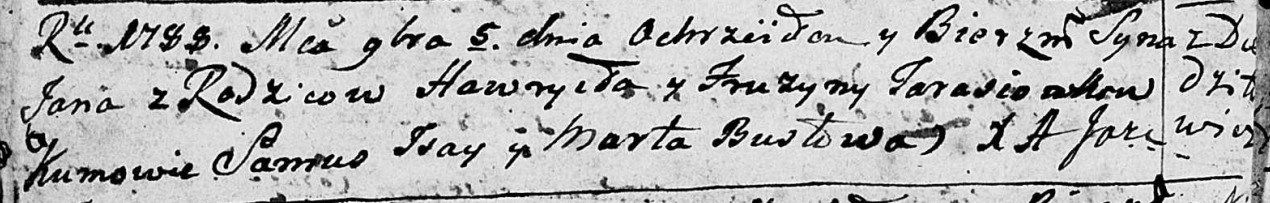 Rꝰ 1788. Mca 9bra 5. dnia Ochrzciłem y Bierzm Syna z Du
Jana z Rodzicow Hawryła y Fruzyny Tarasiow dzit
Kumowie Samus Isay y Marta Busłowa) X A Jaz wicz